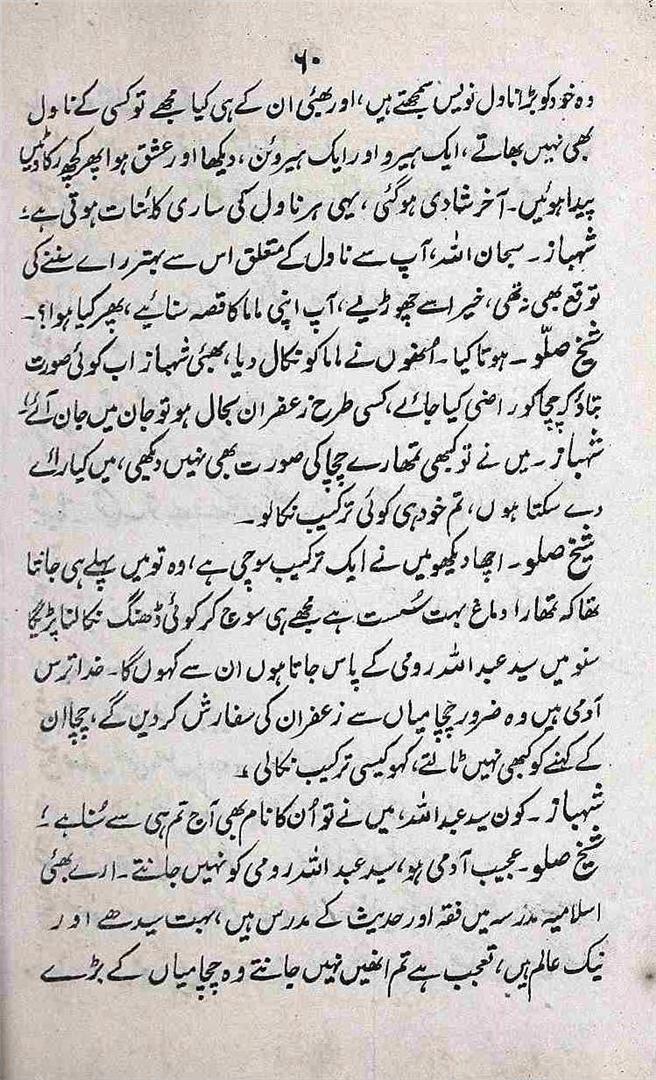 ۶۰
وہ خود کو بڑا ناول نویس سمجھتے ہیں، اور بھئی ان کے ہی کیا مجھے تو کسی کے ناول
بھی نہیں بھاتے، ایک ہیرو اور ایک ہیروئن، دیکھا اور عشق ہوا پھر کچھ رکاوٹیں
پیدا ہوئیں۔ آخر شادی ہو گئی، یہی ہر ناول کی ساری کائنات ہوتی ہے؛
شہباز۔ سبحان اللہ، آپ سے ناول کے متعلق اس سے بہتر رائے سننے کی
توقع بھی نہ تھی، خیر اسے چھوڑیئے، آپ اپنی ماما کا قصہ سنائیے، پھر کیا ہوا؟۔
شیخ صلّو۔ ہوتا کیا۔ اُنھوں نے ماما کو نکال دیا، بھئی شہباز اب کوئی صورت
بتاؤ کہ چچا کو راضی کیا جائے، کسی طرح زعفران بحال ہو تو جان میں جان آئے!
شہباز۔ میں نے تو کبھی تمھارے چچا کی صورت بھی نہیں دیکھی، میں کیا رائے
دے سکتا ہوں، تم خود ہی کوئی ترکیب نکالو۔
شیخ صلو۔ اچھا دیکھو میں نے ایک ترکیب سوچی ہے، وہ تو میں پہلے ہی جانتا
تھا کہ تمھارا دماغ بہت سُست ہے مجھے ہی سوچ کر کوئی ڈھنگ نکالنا پڑیگا
سنو میں سید عبد اللہ رومی کے پاس جاتا ہوں ان سے کہوں گا۔ خدا ترس
آدمی ہیں وہ ضرور چچا میاں سے زعفران کی سفارش کر دیں گے، چچا ان
کے کہنے کو کبھی نہیں ٹالتے، کہو کیسی ترکیب نکالی؟
شہباز۔ کون سید عبد اللہ، میں نے تو اُن کا نام بھی آج تم ہی سے سُنا ہے؛
شیخ صلو۔ عجیب آدمی ہو، سید عبد اللہ رومی کو نہیں جانتے۔ ارے بھئی
اسلامیہ مدرسہ میں فقہ اور حدیث کے مدرس ہیں، بہت سیدھے اور
نیک عالم ہیں، تعجب ہے تم انھیں نہیں جانتے وہ چچا میاں کے بڑے